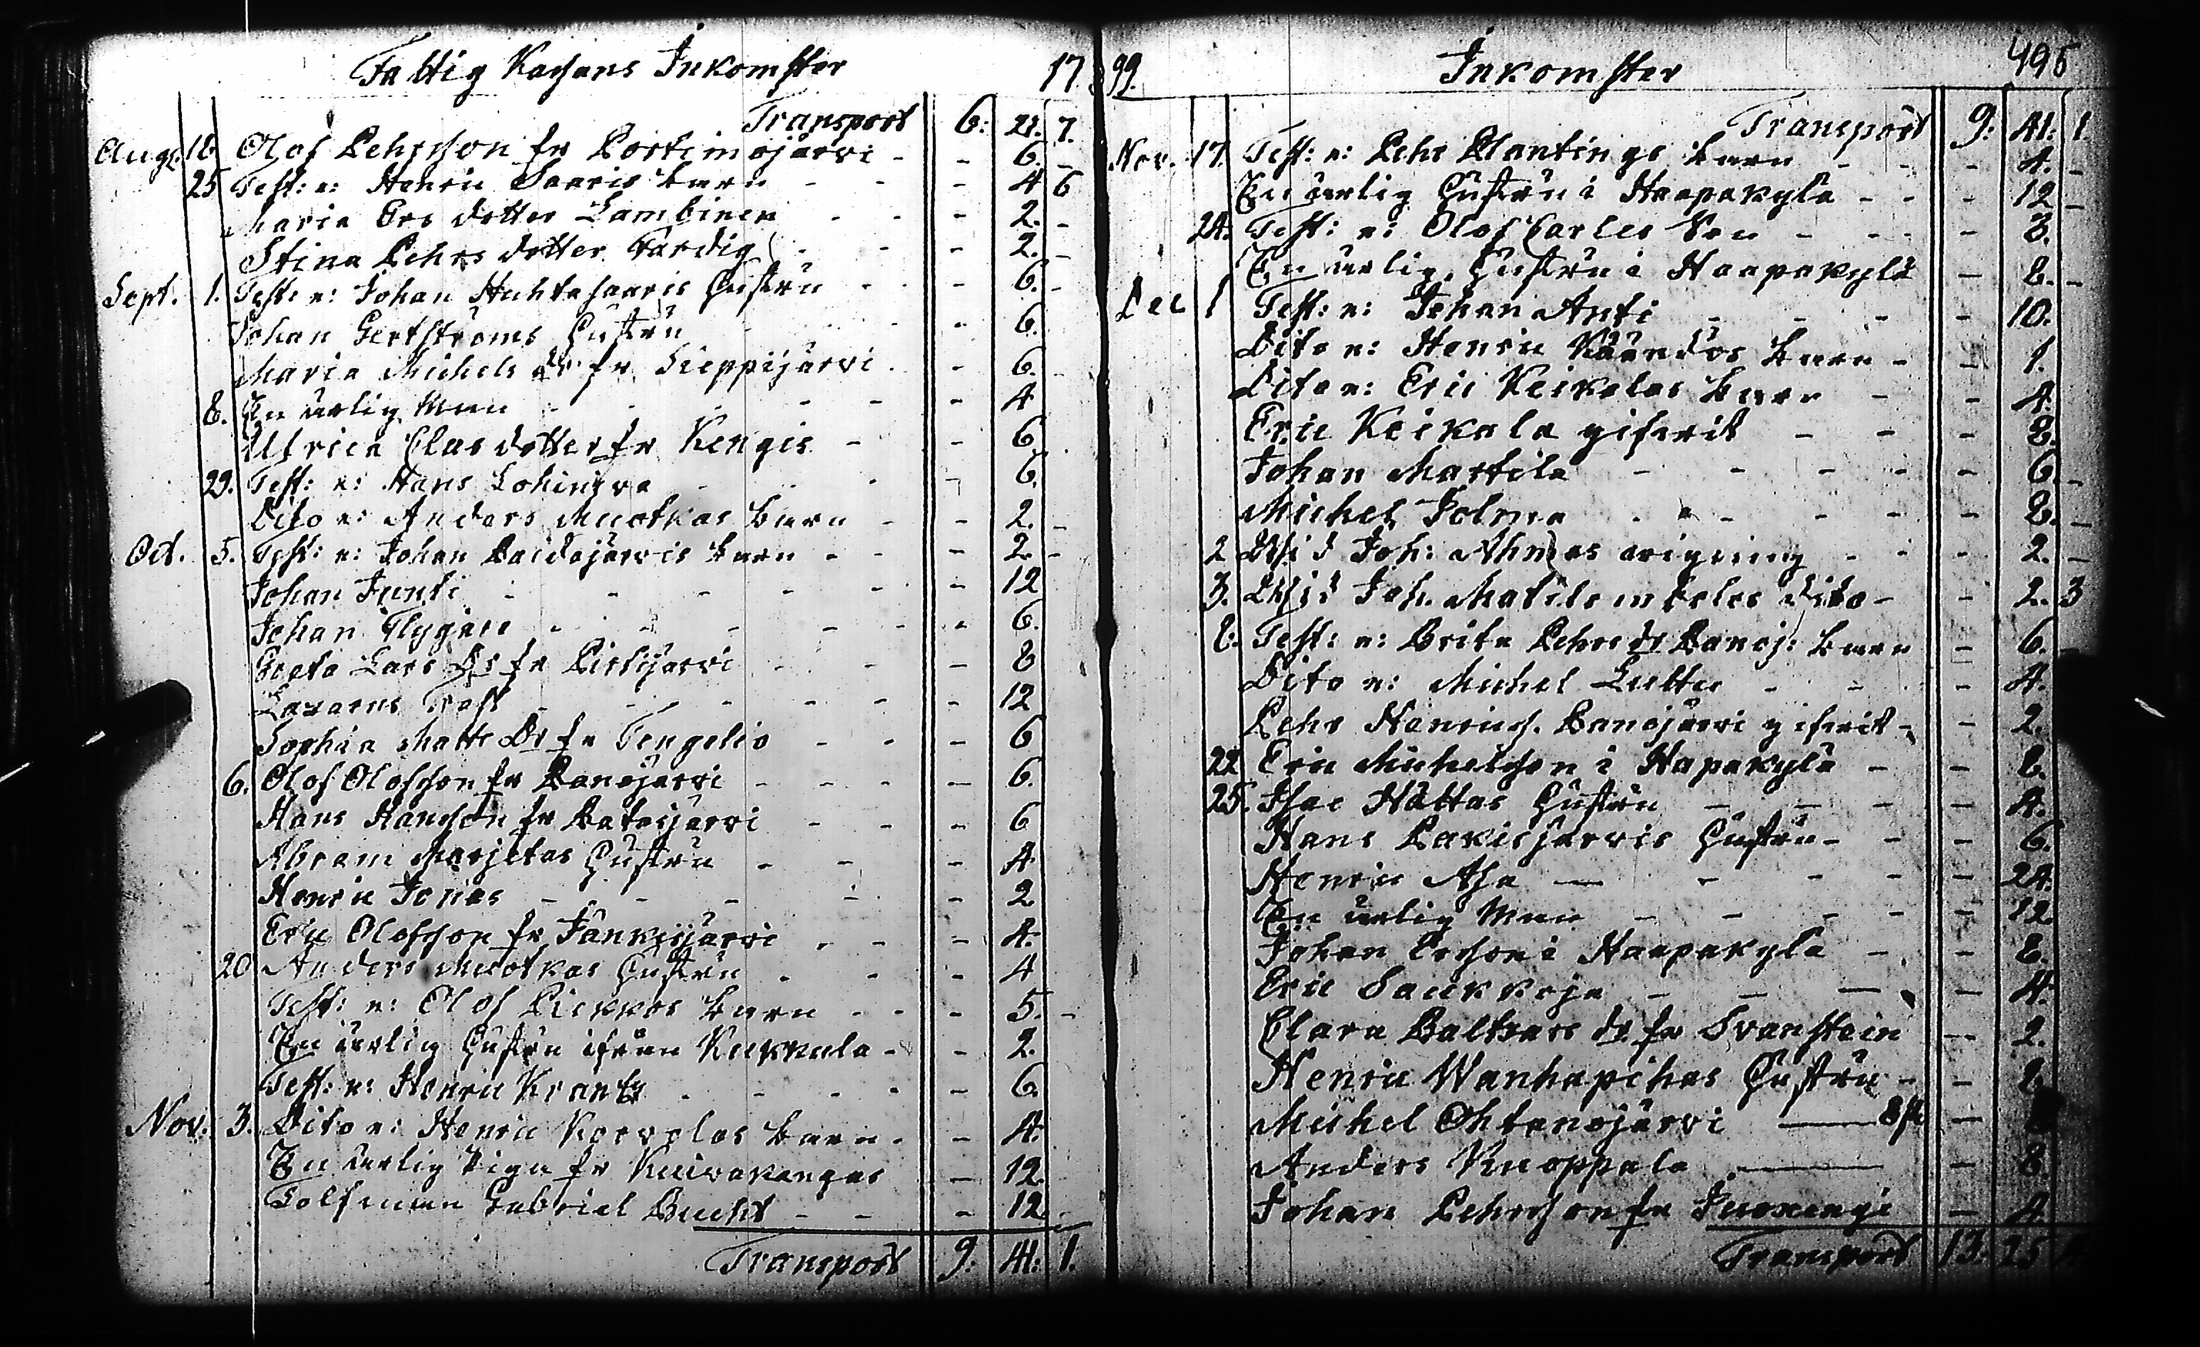 Fattig Kassans Inkomster 17
Transport 6: 21. 7.
Aug. 18 Olof Pehrsson fr Portimojärvi - - 6. -
25 Test: e: Henric Saaris barn - - - 4 6
Maria Ers dotter Lambinen - - - 2. -
Stina Pehrs dotter Vardig - - - 2. -
Sept. 1. Test: e: Johan Huhtasaaris Hustru - - - 6. -
Johan Gertströms Hustru - - - 6.
Maria Michels dr fr Sieppijärvi - - 6.
8. En ärlig Man - - - - - 4
Ulrica Clas dotter fr Kengis - - 6
29. Test: e: Hans Lohiniva - - - 6.
Dito e: Anders Muotkas barn - - 2. -
Oct. 5. Test: e: Johan Paidajärvis barn - - - 2 -
Johan Junti - - - - - - 12
Johan Flygare - - - - - 6.
Greta Lars Dr fr Pirttijärvi - - - 8
Lazarus - - - - - 12
Sophia Matts Dr fr Tengeliö - - - 6
6. Olof Olofsson fr Lanojärvi - - - - 6.
Hans Hansson fr Ratasjärvi - - - 6
Abram Marjetas Hustru - - - 4
Henric Jonas - - - - - 2
Eric Olofsson fr Jänkisjärvi - - - 4.
20 Anders Muotkas Hustru - - - 4
Test: e: Olof Piekkos barn - - - 5. -
En ärlig Hustru ifrån Kukkula - - 2.
Test: e: Henric Krantz - - - - 6.
Nov. 3. Dito e: Henric Korvolas barn - - 4.
En ärlig Piga fr Kuivakangas - 12.
Tolfman Gabriel Bucht - - - 12 -
Transport 9: 41: 1.
99. Inkomster 495
Transport 9: 41: 1
Nov. 17. Test: e: Pehr Plantings barn - - 4. -
En ärlig Hustru i Haapakylä - - - 12 -
24. Test: e: Olof Carles Son - - - - 3.
En ärlig Hustru i Haapakylä - 8. -
Dec 1 Test: e: Johan Anti - - - - 10.
Dito e: Henric barn - - 1.
Dito e: Eric Keikalas barn - - 4.
Eric Keikala gifvit - - - 8.
Johan Martila - - - - - 6. -
Michel Jolma - - - - - 8. -
2 Wid Joh: Ahmas vigning - - - 2. -
3. Wid Joh. Matila dito - - 2. 3
8: Test: e: Brita Pehrs dr Lanoj: barn - 6.
Dito e: Michel - - - 4.
Pehr Henrics. Lanojärvi gifvit - - 2.
22 Eric Michelsson i Hapakylä - - 8.
25. Isac Hättas Hustru - - - - 4.
Hans Lakisjärvis Hustru - - - 6.
Henric Asa - - - - - 24.
En ärlig Man - - - - - 12.
Johan Ersson i Haapakylä - - 8.
Eric Saukkoja - - - - 4.
Clara Baltzars dr fr Svanstein - 2.
Henric Wanhapihas Hustru - -
Michel Ohtanajärvi - 8 sk - 8
Anders Knoppala - - 8.
Johan Pehrsson fr Juoxengi - 4
Transport 13. 25